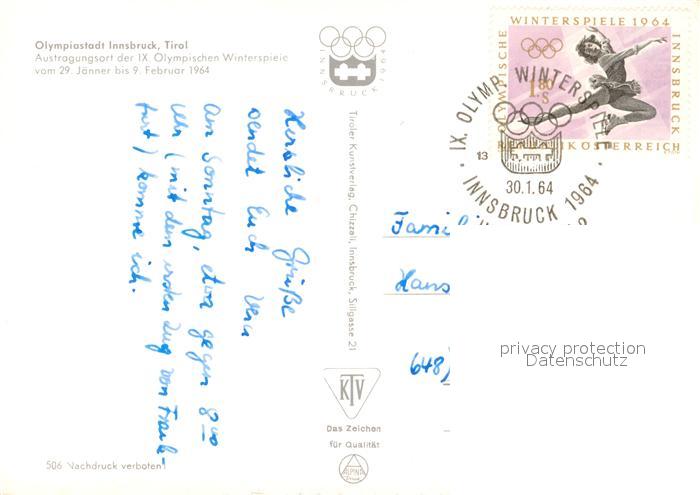 Olympiastadt Innsbruck, Tirol
Austragungsort der IX. Olympischen Winterspiele
vom 29. Jänner bis 9. Februar 1964
INNSBRUCK 1964
OLYMPISCHE WINTERSPIELE 1964 INNSBRUCK
1.80
S
REPUBLIK ÖSTERREICH
IX. OLYMP. WINTERSPIELE
13
30.1.64
INNSBRUCK 1964
Herzliche Grüße
sendet Euch Vera
Am Sonntag, etwa gegen 8 00
Uhr (mit dem ersten Zug von Frank-
furt) komme ich.
Tiroler Kunstverlag, Chizzali, Innsbruck, Sillgasse 21
Fami
Hans
648)
privacy protection
Datenschutz
KTV
Das Zeichen
für Qualität
ALPINA
506 Nachdruck verboten!